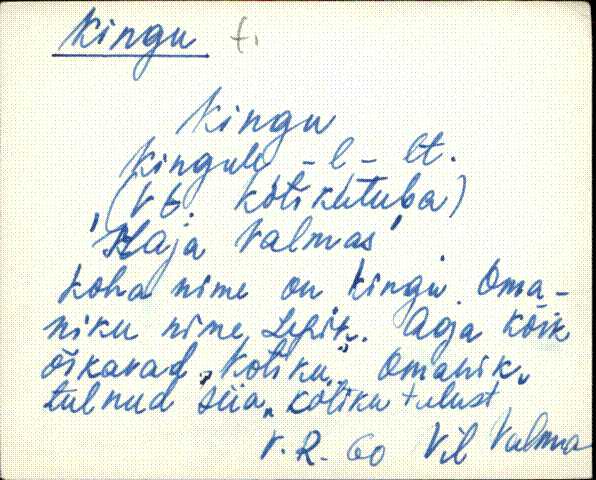 Kingu t.
Kingu
Kingule -l - lt.
(Vt. Kõtikutuba)
Maja Valmas
Koha nime on Kingu. Oma-
niku nime Lepik. Aga kõik
õikavad "Kotiku". Omanik
tulnud siia, Kotiku talust
V. R. 60 Vil Valma